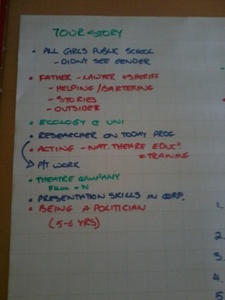 YOUR STORY
• ALL GIRLS PUBLIC SCHOOL
- DIDN'T SEE GENDER
• FATHER - LAWYER + SHERIFF
- HELPING / BARTERING
- STORIES
- OUTSIDER
• ECOLOGY @ UNI
• RESEARCHER ON TODAY PROG
• ACTING - NAT. THEATRE EDUCⁿ
+ TRAINING
P/T WORK
• THEATRE COMPANY
• PRESENTATION SKILLS IN CORP.
• BEING A POLITICIAN
(5-6 YRS)
1.
2
3.
4
5